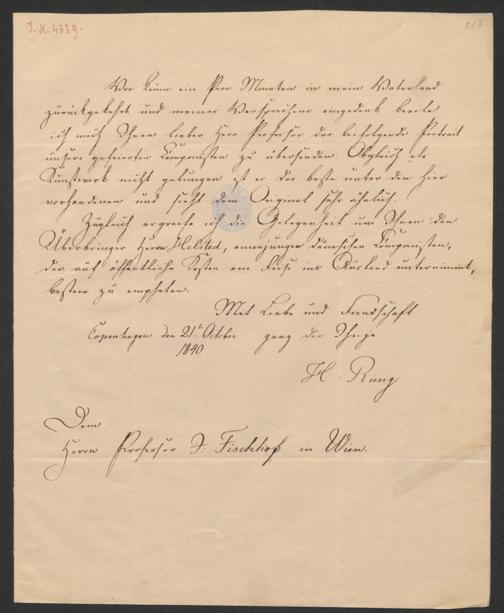 I. N. 4339.
263
Vor kaum ein Paar Monaten in mein Vaterland
zurückgekehrt und meines Versprechens eingedenk beeile
ich mich Ihnen lieber Herr Professor das beifolgende Portrait
unsers gefeierten Componisten zu übersenden. Obgleich als
Kunstwerk nicht gelungen ist es das beste unter den hier
vorhandenen und sieht dem Original sehr ähnlich.
Zugleich ergreife ich die Gelegenheit um Ihnen den
Überbringer Herrn Helsted, einen jungen dänischen Componisten,
der auf öffentliche Kosten eine Reise ins Ausland unternimmt,
bestens zu empfehlen.
Mit Liebe und Freundschaft
Copenhagen den 21. October ganz der Ihrige
1840
H: Rung
Dem
Herrn Professor J: Fischhof in Wien.